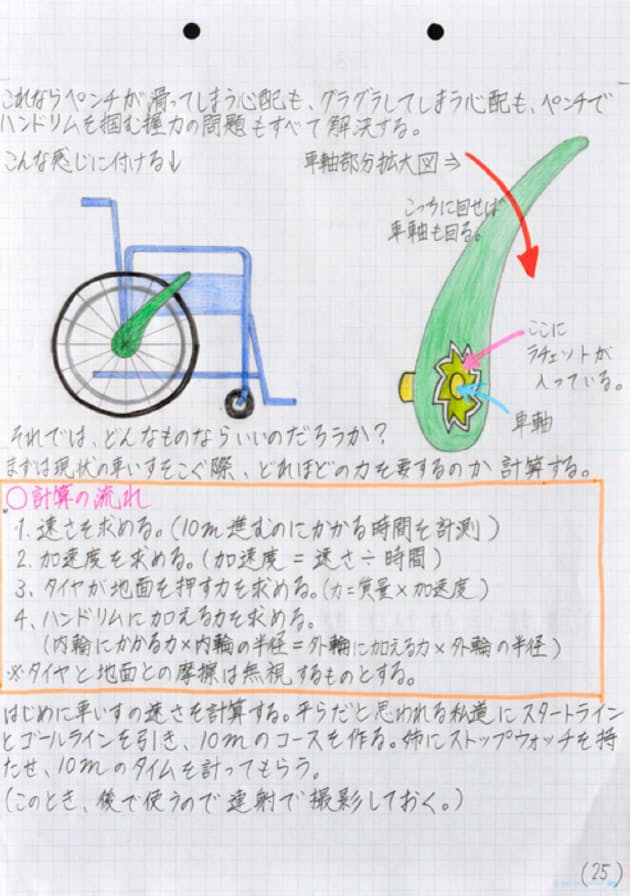 これならペンチが滑ってしまう心配も、グラグラしてしまう心配も、ペンチで
ハンドリムを掴む握力の問題もすべて解決する。
こんな感じに付ける↓
車軸部分拡大図⇒
こっちに回せば
車軸も回る。
ここに
ラチェットが
入っている。
車軸
それでは、どんなものならいいのだろうか?
まずは現状の車いすをこぐ際、どれほどの力を要するのか計算する。
○計算の流れ
1. 速さを求める。(10m進むのにかかる時間を計測)
2. 加速度を求める。(加速度=速さ÷時間)
3. タイヤが地面を押す力を求める。(力=質量×加速度)
4. ハンドリムに加える力を求める。
(内輪にかかる力×内輪の半径=外輪に加える力×外輪の半径)
※タイヤと地面との摩擦は無視するものとする。
はじめに車いすの速さを計算する。平らだと思われる私道にスタートライン
とゴールラインを引き、10mのコースを作る。姉にストップウォッチを持
たせ、10mのタイムを計ってもらう。
(このとき、後で使うので連射で撮影しておく。)
(25)